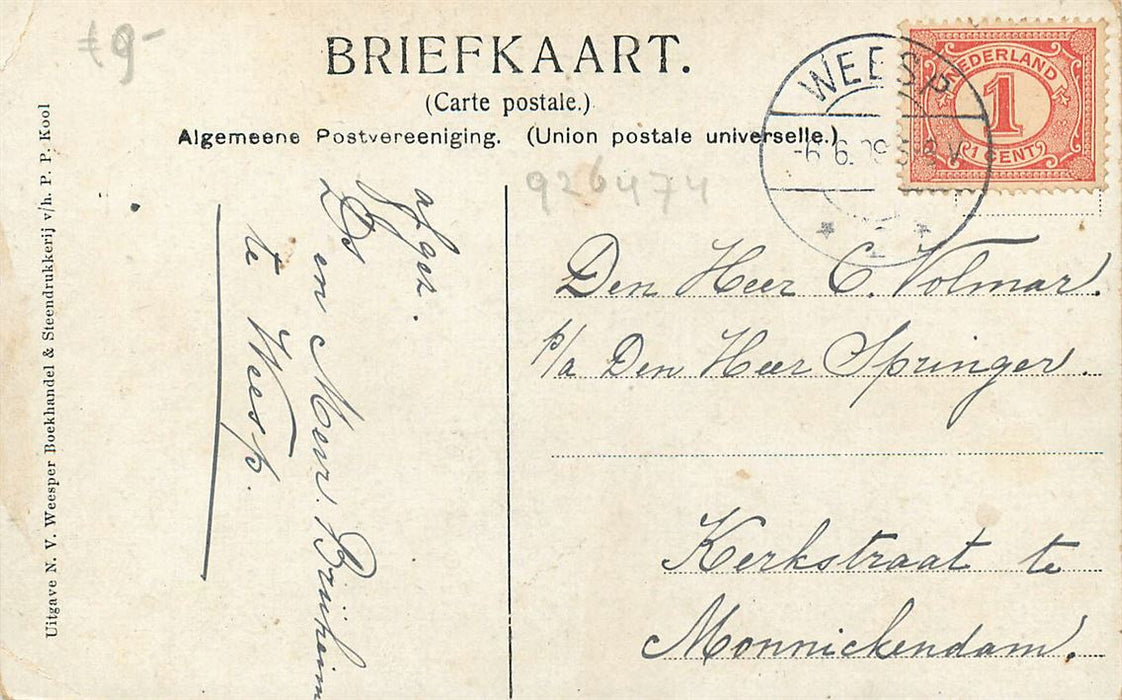 £9-
BRIEFKAART.
(Carte postale.)
Algemeene Postvereeniging. (Union postale universelle.)
WEESP
-6.6.09 8-9 V
2
NEDERLAND
1
1 CENT
926474
Den Heer C. Volmar.
p/a Den Heer Springer.
Kerkstraat te
Monnickendam.
afgez.
Ds
en Mevr.
te Weesp.
Uitgave N. V. Weesper Boekhandel & Steendrukkerij v/h. P. P. Kool